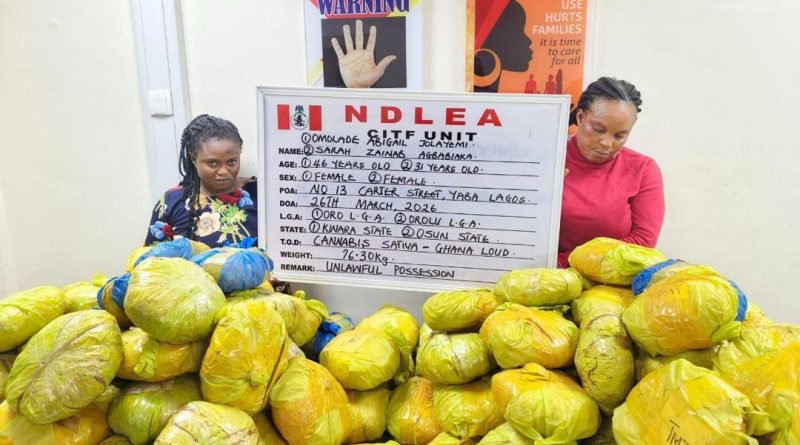 WARNING
USE
HURTS
FAMILIES
It is time
to care
for all
NDLEA
CITF UNIT
NAME: ① OMOLADE ABIGAIL JOLAYEMI.
② SARAH ZAINAB AGBABIAKA.
AGE: ① 46 YEARS OLD ② 31 YEARS OLD.
SEX: ① FEMALE ② FEMALE.
POA: NO 13 CARIER STREET, YABA LAGOS.
DOA: 26TH MARCH, 2026
L.G.A: ① ORO L.G.A. ② OROLU L.G.A.
STATE: ① KWARA STATE ② OSUN STATE.
T.O.D: CANNABIS SATIVA - GHANA LOUD.
WEIGHT: 76.30Kg.
REMARK: UNLAWFUL POSSESSION